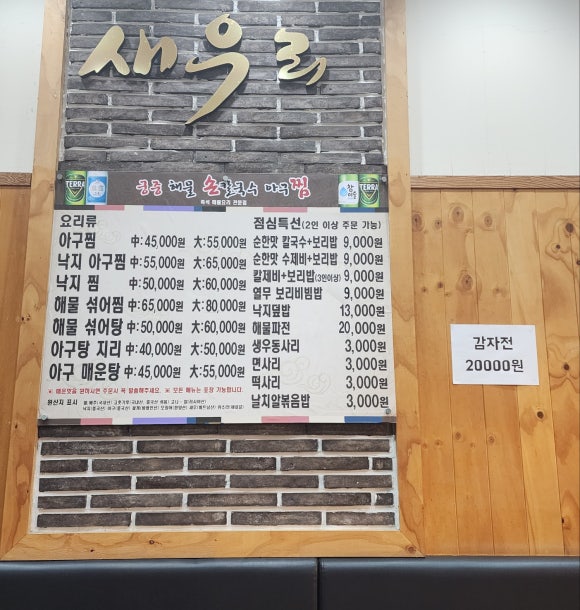 새우리
TERRA
궁중 해물 손칼국수 아구찜
즉석 해물요리 전문점
참이슬
TERRA
요리류
아구찜 中: 45,000원 大: 55,000원
낙지 아구찜 中: 55,000원 大: 65,000원
낙지 찜 中: 50,000원 大: 60,000원
해물 섞어찜 中: 65,000원 大: 80,000원
해물 섞어탕 中: 50,000원 大: 60,000원
아구탕 지리 中: 40,000원 大: 50,000원
아구 매운탕 中: 45,000원 大: 55,000원
※ 매운맛을 원하시면 주문시 꼭 말씀해주세요. ※ 모든 메뉴는 포장 가능합니다.
원산지 표시
점심특선(2인 이상 주문 가능)
순한맛 칼국수+보리밥 9,000원
순한맛 수제비+보리밥 9,000원
칼제비+보리밥(3인이상) 9,000원
열무 보리비빔밥 9,000원
낙지덮밥 13,000원
해물파전 20,000원
생우동사리 3,000원
면사리 3,000원
떡사리 3,000원
날치알볶음밥 3,000원
감자전
20000원